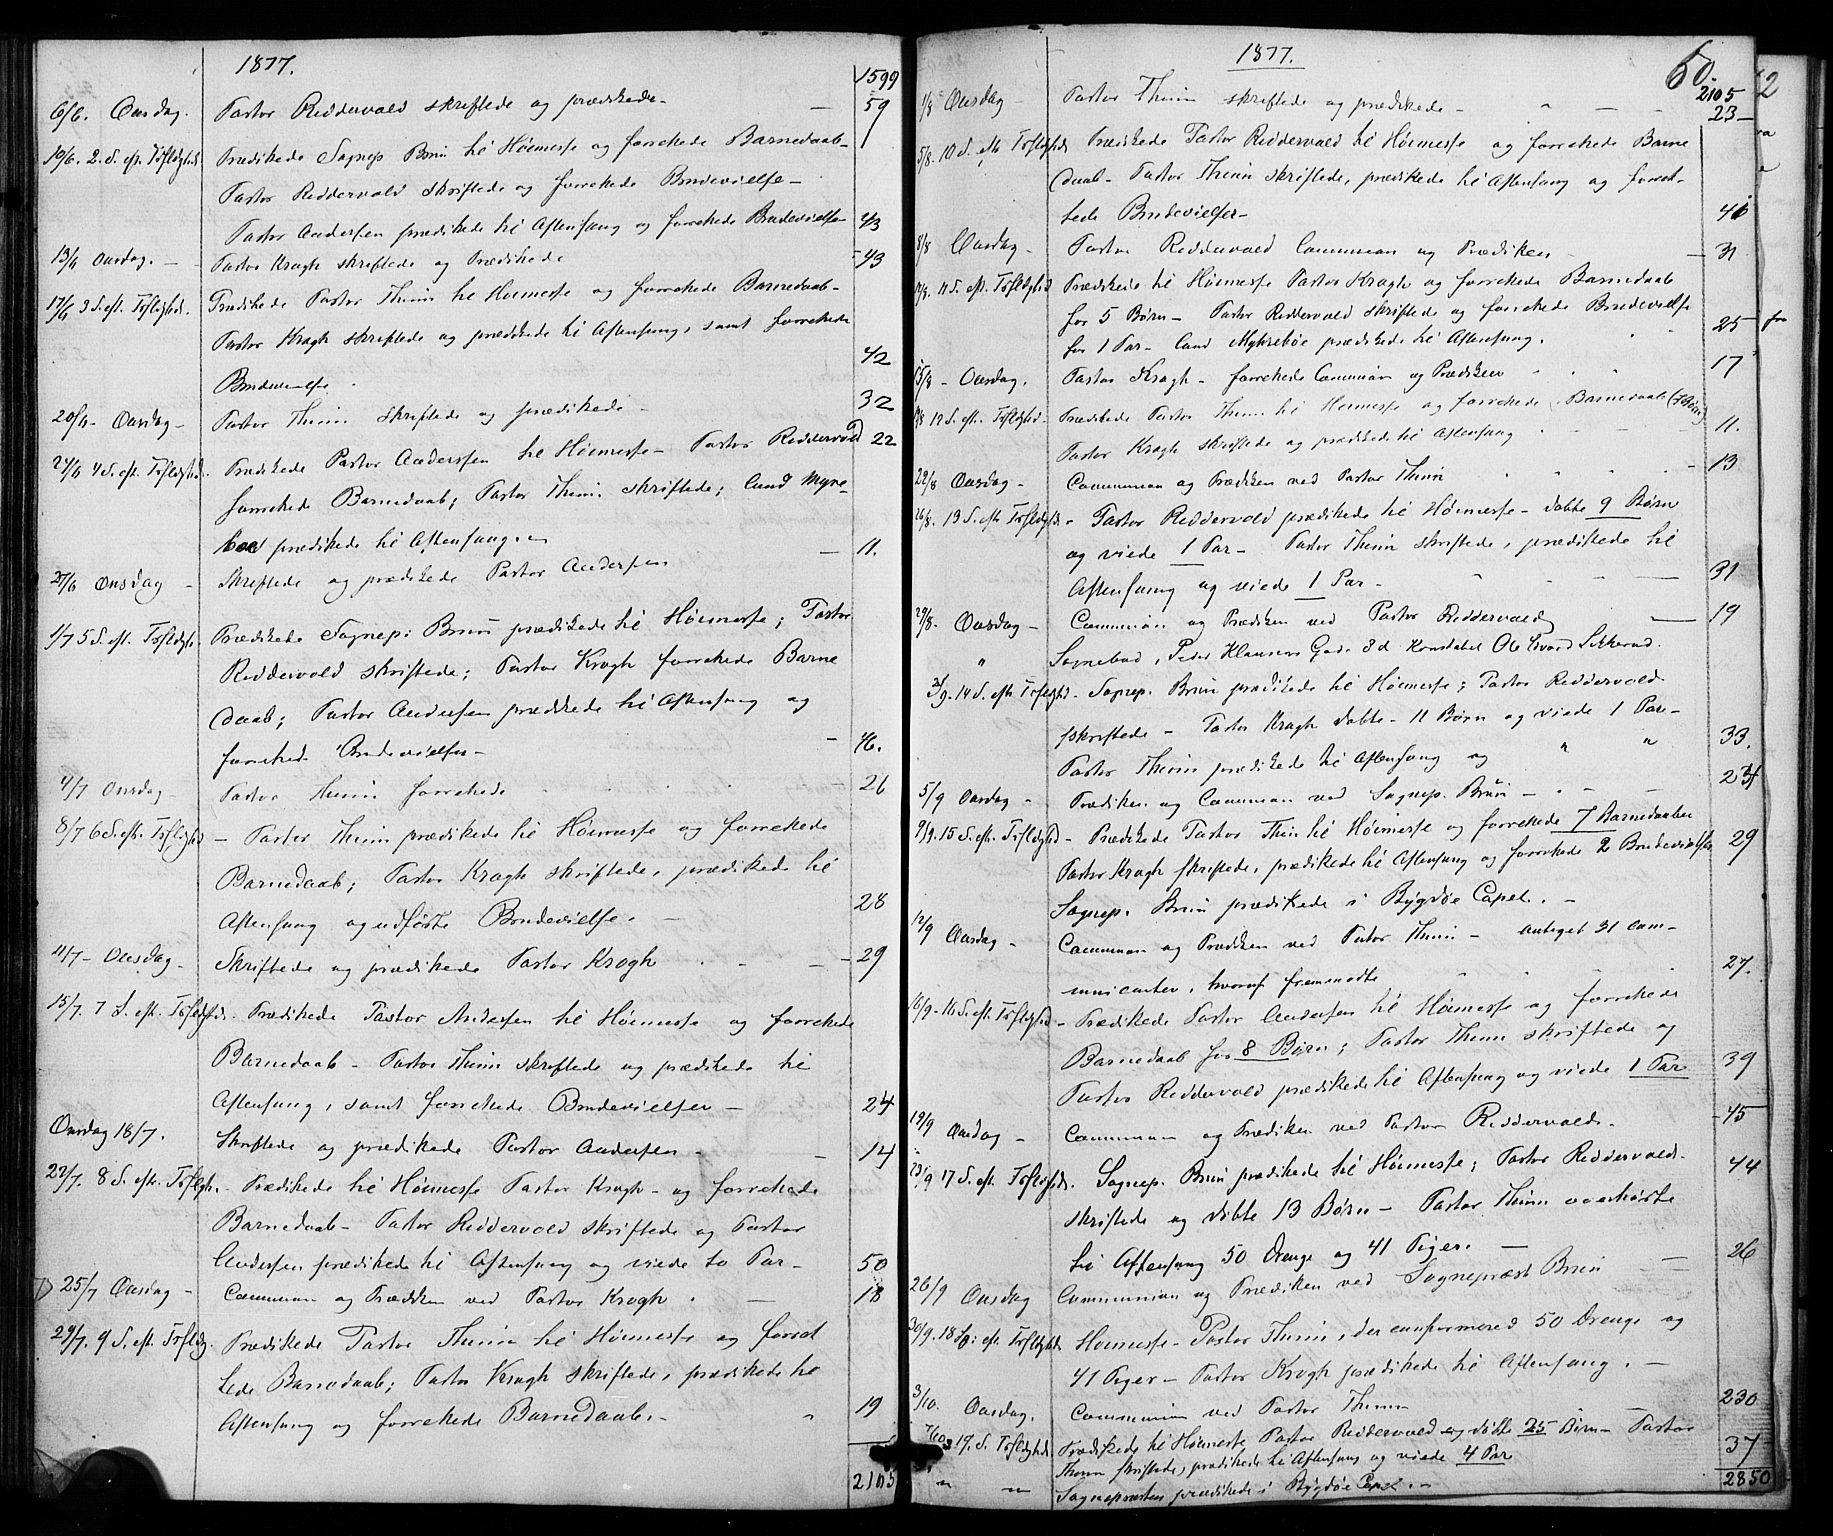 1877.
1599
6/6. Onsdag. Pastor Riddervold skriftede og prædikede – 59
10/6. 2. S. eft. Trefldghd. Prædikede Sognep Bruun til Høimesse og forrettede Barnedaab –
Pastor Riddervold skriftede og forrettede Brudevielse –
Pastor Andersen prædikede til Aftensang og forrettede Brudevielse 43
13/6 Onsdag. – Pastor Kragh skriftede og Prædikede – 43
17/6 3 S. eft. Trefldghd. Prædikede Pastor Thinn til Høimesse og forrettede Barnedaab –
Pastor Kragh skriftede og prædikede til Aftensang, samt forrettede
Brudevielse. 42
20/6 – Onsdag – Pastor Thinn skriftede og prædikede – 32
24/6 4 S. eft. Trefldghd. Prædikede Pastor Anderssen til Høimesse – Pastor Riddervold 22
forrettede Barnedaab; Pastor Thinn skriftede; Cand Myre-
boe prædikede til Aftensang. –
27/6 Onsdag – Skriftede og prædikede Pastor Andersen – 11.
1/7 5 S. eft. Trefldghd. Prædikede Sognep: Bruun prædikede til Høimesse; Pastor
Riddervold skriftede; Pastor Kragh forrettede Barne
daab; Pastor Andersen prædikede til Aftensang og
forretted Brudevielser – 46.
4/7 Onsdag – Pastor Thinn forrettede 26
8/7 6 S. eft. Trefldghd – Pastor Thinn prædikede til Høimesse og forrettede
Barnedaab; Pastor Kragh skriftede, prædikede til
Aftensang og udførte Brudevielse. – 28
11/7 – Onsdag – Skriftede og prædikede Pastor Kragh – 29
15/7. 7 S. eft. Trefldghd. Prædikede Pastor Andersen til Høimesse og forrettede
Barnedaab – Pastor Thinn skriftede og prædikede til
Aftensang, samt forrettede Brudevielser – 24
Onsdag 18/7. Skriftede og prædikede Pastor Andersen – 14
22/7. 8 S. eft. Trefldgh. – Prædikede til Høimesse Pastor Kragh – og forrettede
Barnedaab – Pastor Riddervold skriftede og Pastor
Andersen prædikede til Aftensang og viede to Par – 50
25/7 Onsdag – Communion og Prædiken ved Pastor Kragh. – 18
29/7. 9 S. eft. Trefldg. Prædikede Pastor Thinn til Høimesse og forret
tede Barnedaab; Pastor Kragh skriftede, prædikede til
Aftensang og forrettede Barnedaab. – 19
2105
1877.
60.
2105
1/8 Onsdag – Pastor Thinn skriftede og prædikede – 23 –
5/8. 10 S. eft Trefldghd. Prædikede Pastor Riddervold til Høimesse og forrettede Barne
daab – Pastor Thinn skriftede, prædikede til Aftensang og forret-
tede Brudevielser –
8/8 Onsdag – Pastor Riddervold Communion og Prædiken – 31
12/8. 11 S. eft. Trefldghd Prædikede til Høimesse Pastor Kragh og forrettede Barnedaab
for 5 Børn – Pastor Riddervold skriftede og forrettede Brudevielse
for 1 Par – Cand Myhreboe prædikede til Aftensang. 25
15/8 – Onsdag. Pastor Kragh – forrettede Communion og Prædiken 17
19/8 12 S. eft. Trefldghd. Prædikede Pastor Thinn til Høimesse og forrettede Barnedaab (7 Børn)
Pastor Kragh skriftede og prædikede til Aftensang 11.
22/8 Onsdag – Communion og Prædiken ved Pastor Thinn – 13
26/8. 13 S. eft. Trefldghd – Pastor Riddervold prædikede til Høimesse – døbte 9 Børn
og viede 1 Par – Pastor Thinn skriftede, prædikede til
Aftensang og viede 1 Par – 31
29/8. Onsdag – Communion og Prædiken ved Pastor Riddervold – 19
" Sognebud, Peder Klausens Gade 8 d Konstabel Ole Evard Sikkerud.
2/9. 14 S. eft Trefldghd – Sognep. Bruun prædikede til Høimesse; Pastor Riddervold
skriftede – Pastor Kragh døbte – 11 Børn og viede 1 Par –
Pastor Thinn prædikede til Aftensang og " " 33.
5/9 Onsdag – Prædiken og Communion ved Sognep. Bruun –
9/9. 15 S. eft. Trefldghd – Prædikede Pastor Thinn til Høimesse og forrettede 7 Barnedaaber
Pastor Kragh skriftede, prædikede til Aftensang og forrettede 2 Brudevielser 29
Sognep. Bruun prædikede i Bygdøe Capel. –
12/9 Onsdag – Communion og Prædiken ved Pastor Thinn – anteget 31 com-
municanter, hvoraf fremmødte 27.
16/9 – 16 S. eft. Trefldghd – Prædikede Pastor Andersen til Høimesse og forrettede
Barnedaab for 8 Børn; Pastor Thinn skriftede og
Pastor Riddervold prædikede til Aftensang og viede 1 Par 39
19/9 Onsdag – Communion og Prædiken ved Pastor Riddervold. – 45
23/9 17 S. eft. Trefldghd. Sognep. Bruun prædikede til Høimesse; Pastor Riddervold 44
skriftede og døbte 13 Børn – Pastor Thinn overhørte
til Aftensang 50 Drenge og 41 Piger. –
26/9 Onsdag Communion og Prædiken ved Sognepræst Bruun – 26
30/9. 18 S: eft Trefldghd. Høimesse – Pastor Thinn, der confirmered 50 Drenge og
41 Piger – Pastor Kragh prædikede til Aftensang. –
3/10. Onsdag. Communion ved Pastor Thinn 230
7/10 19. S. Trefldghd. Prædikede til Høimesse Pastor Riddervold og døbte 25 Børn – Pastor
Thinn skriftede, prædikede til Aftensang og viede 4 Par 37
" " Sognepræsten prædikede i Bygdøe Capel. – 2850